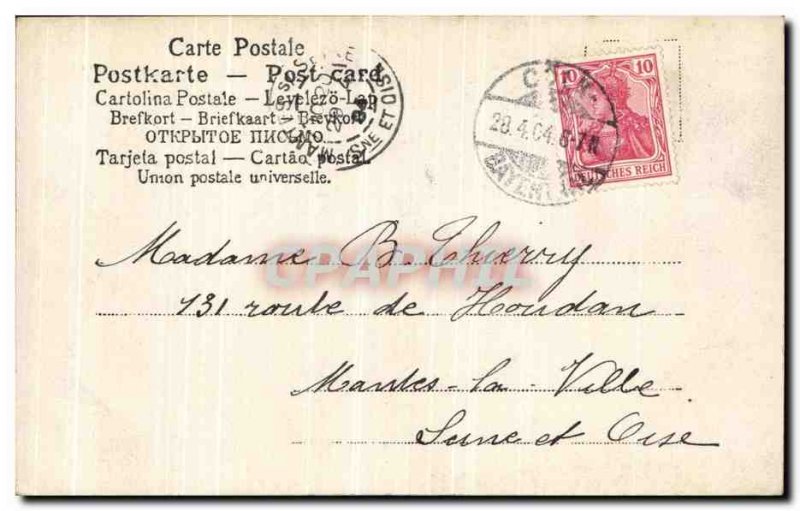 Carte Postale
Postkarte — Post card
Cartolina Postale — Levelező-Lap
Brefkort — Briefkaart — Brevkort
ОТКРЫТОЕ ПИСЬМО
Tarjeta postal — Cartão postal
Union postale universelle.
SNE ET OISE
28.4.04.6-7.N
BAYENTHAL
10 10
DEUTSCHES REICH
CPAPHIL
Madame B. Thierry
131 route de Houdan
Mantes-la-Ville
Seine et Oise